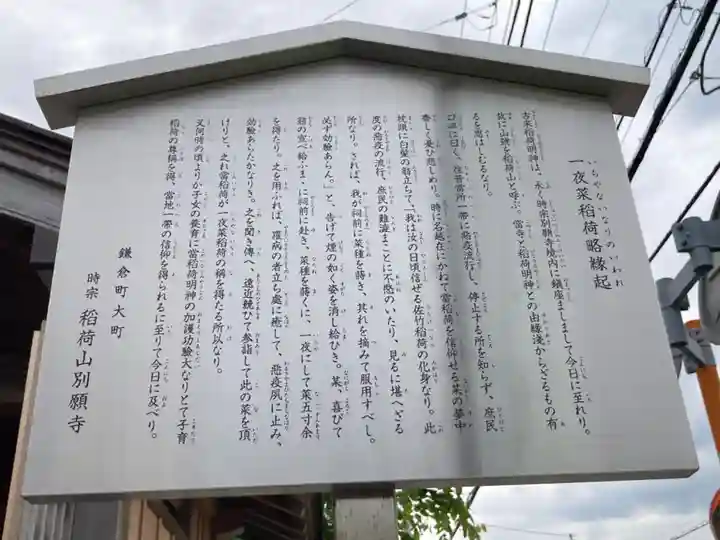 いちやないなりのいわれ
一夜菜稲荷略縁起
古来稲荷明神は、永く時宗別願寺境内に鎮座ましまして今日に至れり。
故に山號を稲荷山と呼ぶ。當寺と稲荷明神との由縁浅からざるもの有
るを思はしむるなり。
口伝に曰く、往昔當所一帯に悪疫流行し、停止する所を知らず、庶民
悉しく憂ひ悲しめり。時に名越在にかねて當稲荷を信仰せる某の夢中
枕頭に白髪の翁立ちて、我は汝の日頃信ぜる佐竹稲荷の化身なり。此
度の悪疫の流行、庶民の難澁まことに不愍のいたり、見るに堪へざる
所なり。されば、我が祠前に菜種を蒔き、其れを摘みて服用すべし。
必ず効験あらん。」と、告げて煙の如く姿を消し給ひき。某、喜びて
翁の宣べ給ふまゝに祠前に赴き、菜種を蒔くに、一夜にして菜五寸余
を得たり。之を用ふれば、罹病の者立ち處に癒して、悪疫夙に止み、
効験あらたかなりき。之を聞き傳へ、遠近競ひて参詣して此の菜を頂
けりと、之れ當稲荷が一夜菜稲荷の稱を得たる所以なり。
又何時の頃よりか子女の養育に當稲荷明神の加護功験大なりとて子育
稲荷の尊稱を得、當地一帯の信仰を得られるに至りて今日に及べり。
鎌倉町大町
時宗 稲荷山別願寺